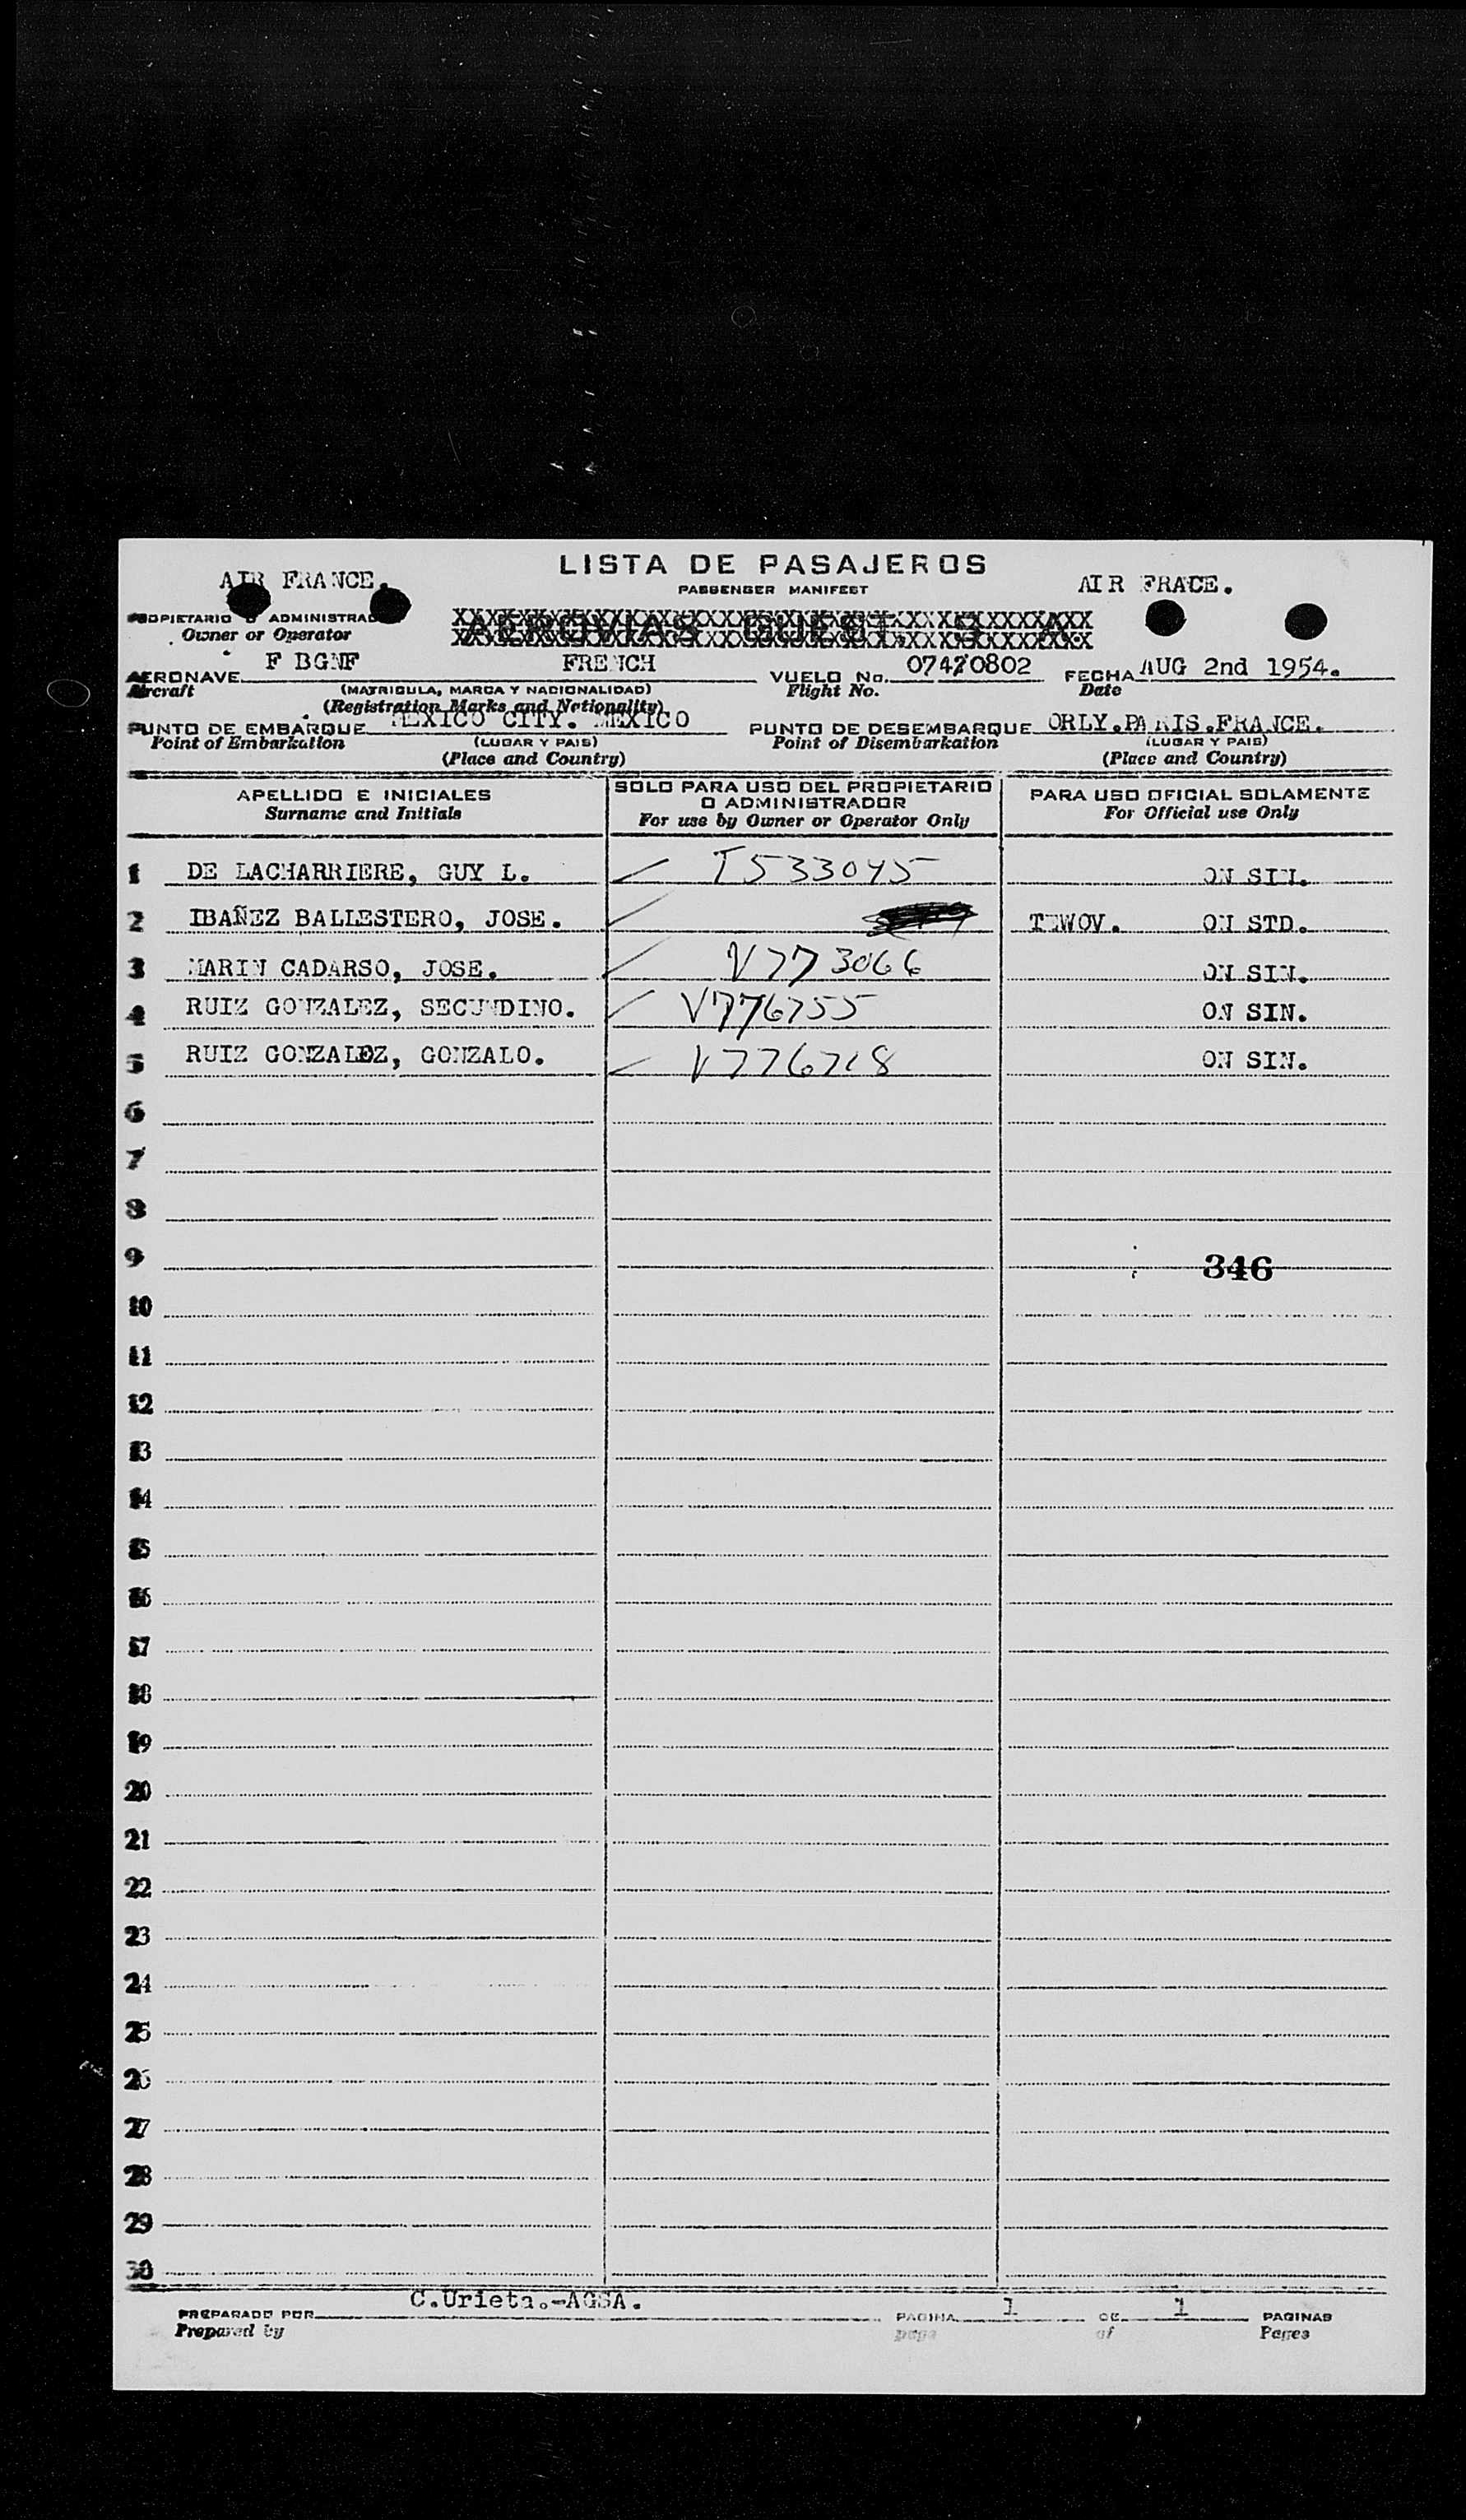 LISTA DE PASAJEROS
AIR FRANCE.
PASSENGER MANIFEST
AIR FRACE.
PROPIETARIO O ADMINISTRADOR
AEROVIAS GUEST, S. A.
Owner or Operator
F BGNF FRENCH 07420802 AUG 2nd 1954.
AERONAVE VUELO No. FECHA
Aircraft (MATRICULA, MARCA Y NACIONALIDAD) Flight No. Date
(Registration Marks and Nationality)
MEXICO CITY. MEXICO ORLY.PARIS.FRANCE.
PUNTO DE EMBARQUE PUNTO DE DESEMBARQUE
Point of Embarkation (LUGAR Y PAIS) Point of Disembarkation (LUGAR Y PAIS)
(Place and Country) (Place and Country)
APELLIDO E INICIALES SOLO PARA USO DEL PROPIETARIO PARA USO OFICIAL SOLAMENTE
O ADMINISTRADOR
Surname and Initials For use by Owner or Operator Only For Official use Only
1 DE LACHARRIERE, GUY L. T533045 ON SIN.
2 IBAÑEZ BALLESTERO, JOSE. TEWOV. ON STD.
3 MARIN CADARSO, JOSE. V773066 ON SIN.
4 RUIZ GONZALEZ, SECUNDINO. V776755 ON SIN.
5 RUIZ GONZALEZ, GONZALO. V776718 ON SIN.
6
7
8
9 346
10
11
12
13
14
15
16
17
18
19
20
21
22
23
24
25
26
27
28
29
30
C.Urieta.-AGSA. 1 1
PREPARADO POR PAGINA DE PAGINAS
Prepared by page of Pages